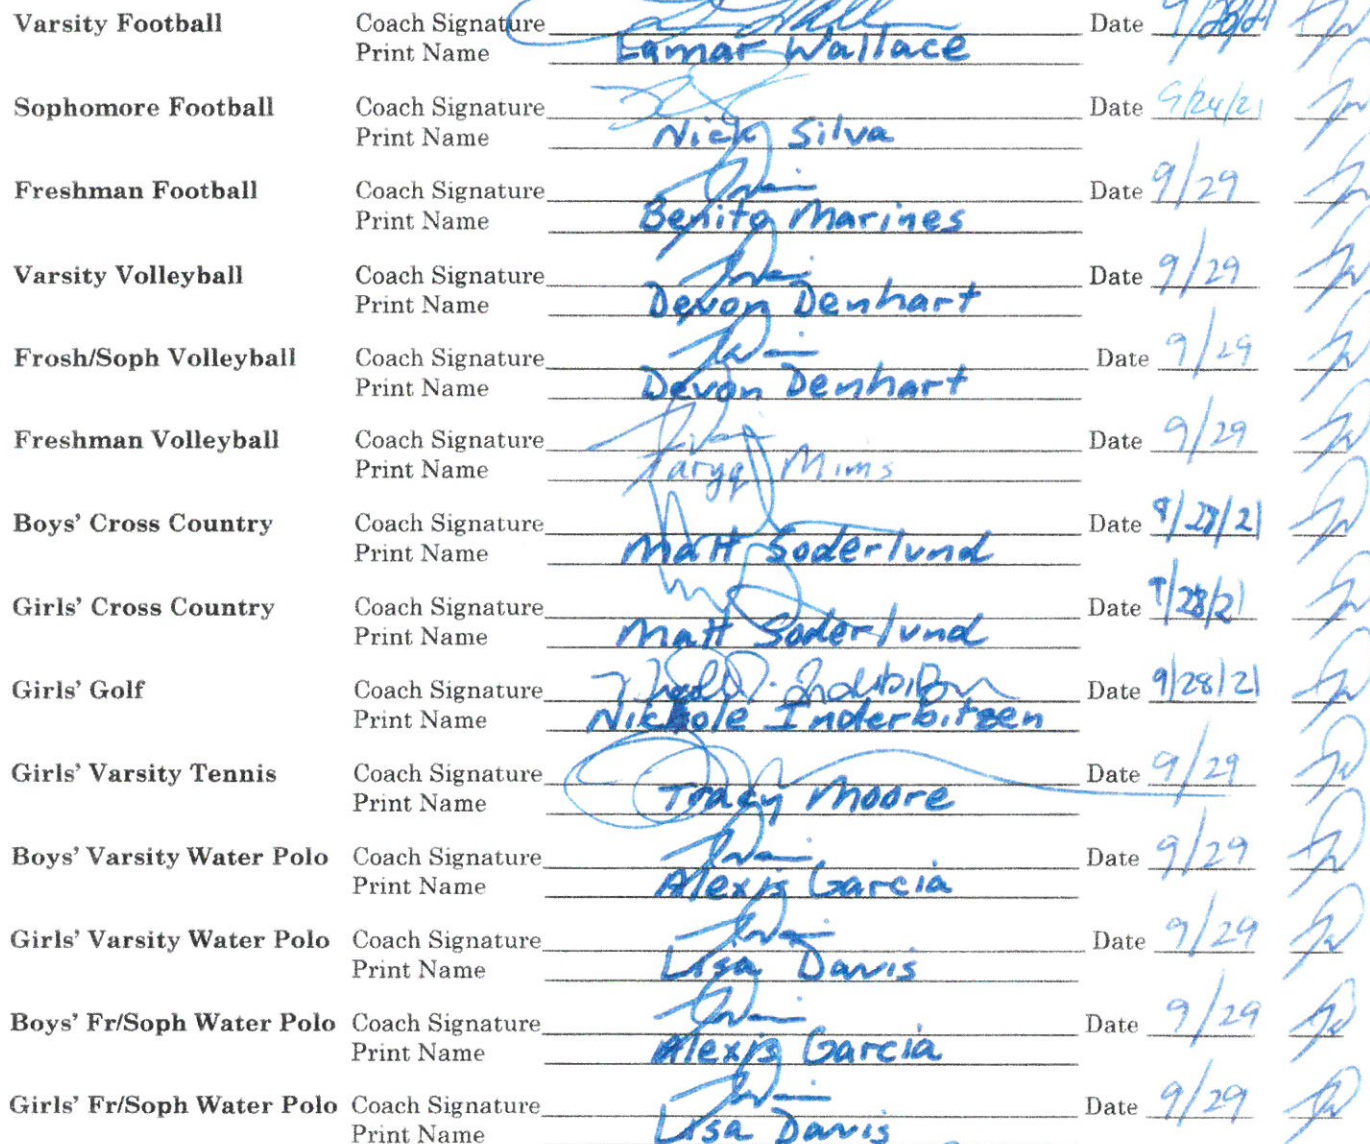 Varsity Football Coach Signature Date 9/28/21
Print Name Lamar Wallace
Sophomore Football Coach Signature Date 9/24/21
Print Name Nick Silva
Freshman Football Coach Signature Date 9/29
Print Name Benito Marines
Varsity Volleyball Coach Signature Date 9/29
Print Name Devon Denhart
Frosh/Soph Volleyball Coach Signature Date 9/29
Print Name Devon Denhart
Freshman Volleyball Coach Signature Date 9/29
Print Name Taryq Mims
Boys' Cross Country Coach Signature Date 9/28/21
Print Name Matt Soderlund
Girls' Cross Country Coach Signature Date 9/28/21
Print Name Matt Soderlund
Girls' Golf Coach Signature Date 9/28/21
Print Name Nichole Inderbitzen
Girls' Varsity Tennis Coach Signature Date 9/29
Print Name Tracy Moore
Boys' Varsity Water Polo Coach Signature Date 9/29
Print Name Alexis Garcia
Girls' Varsity Water Polo Coach Signature Date 9/29
Print Name Lisa Davis
Boys' Fr/Soph Water Polo Coach Signature Date 9/29
Print Name Alexis Garcia
Girls' Fr/Soph Water Polo Coach Signature Date 9/29
Print Name Lisa Davis